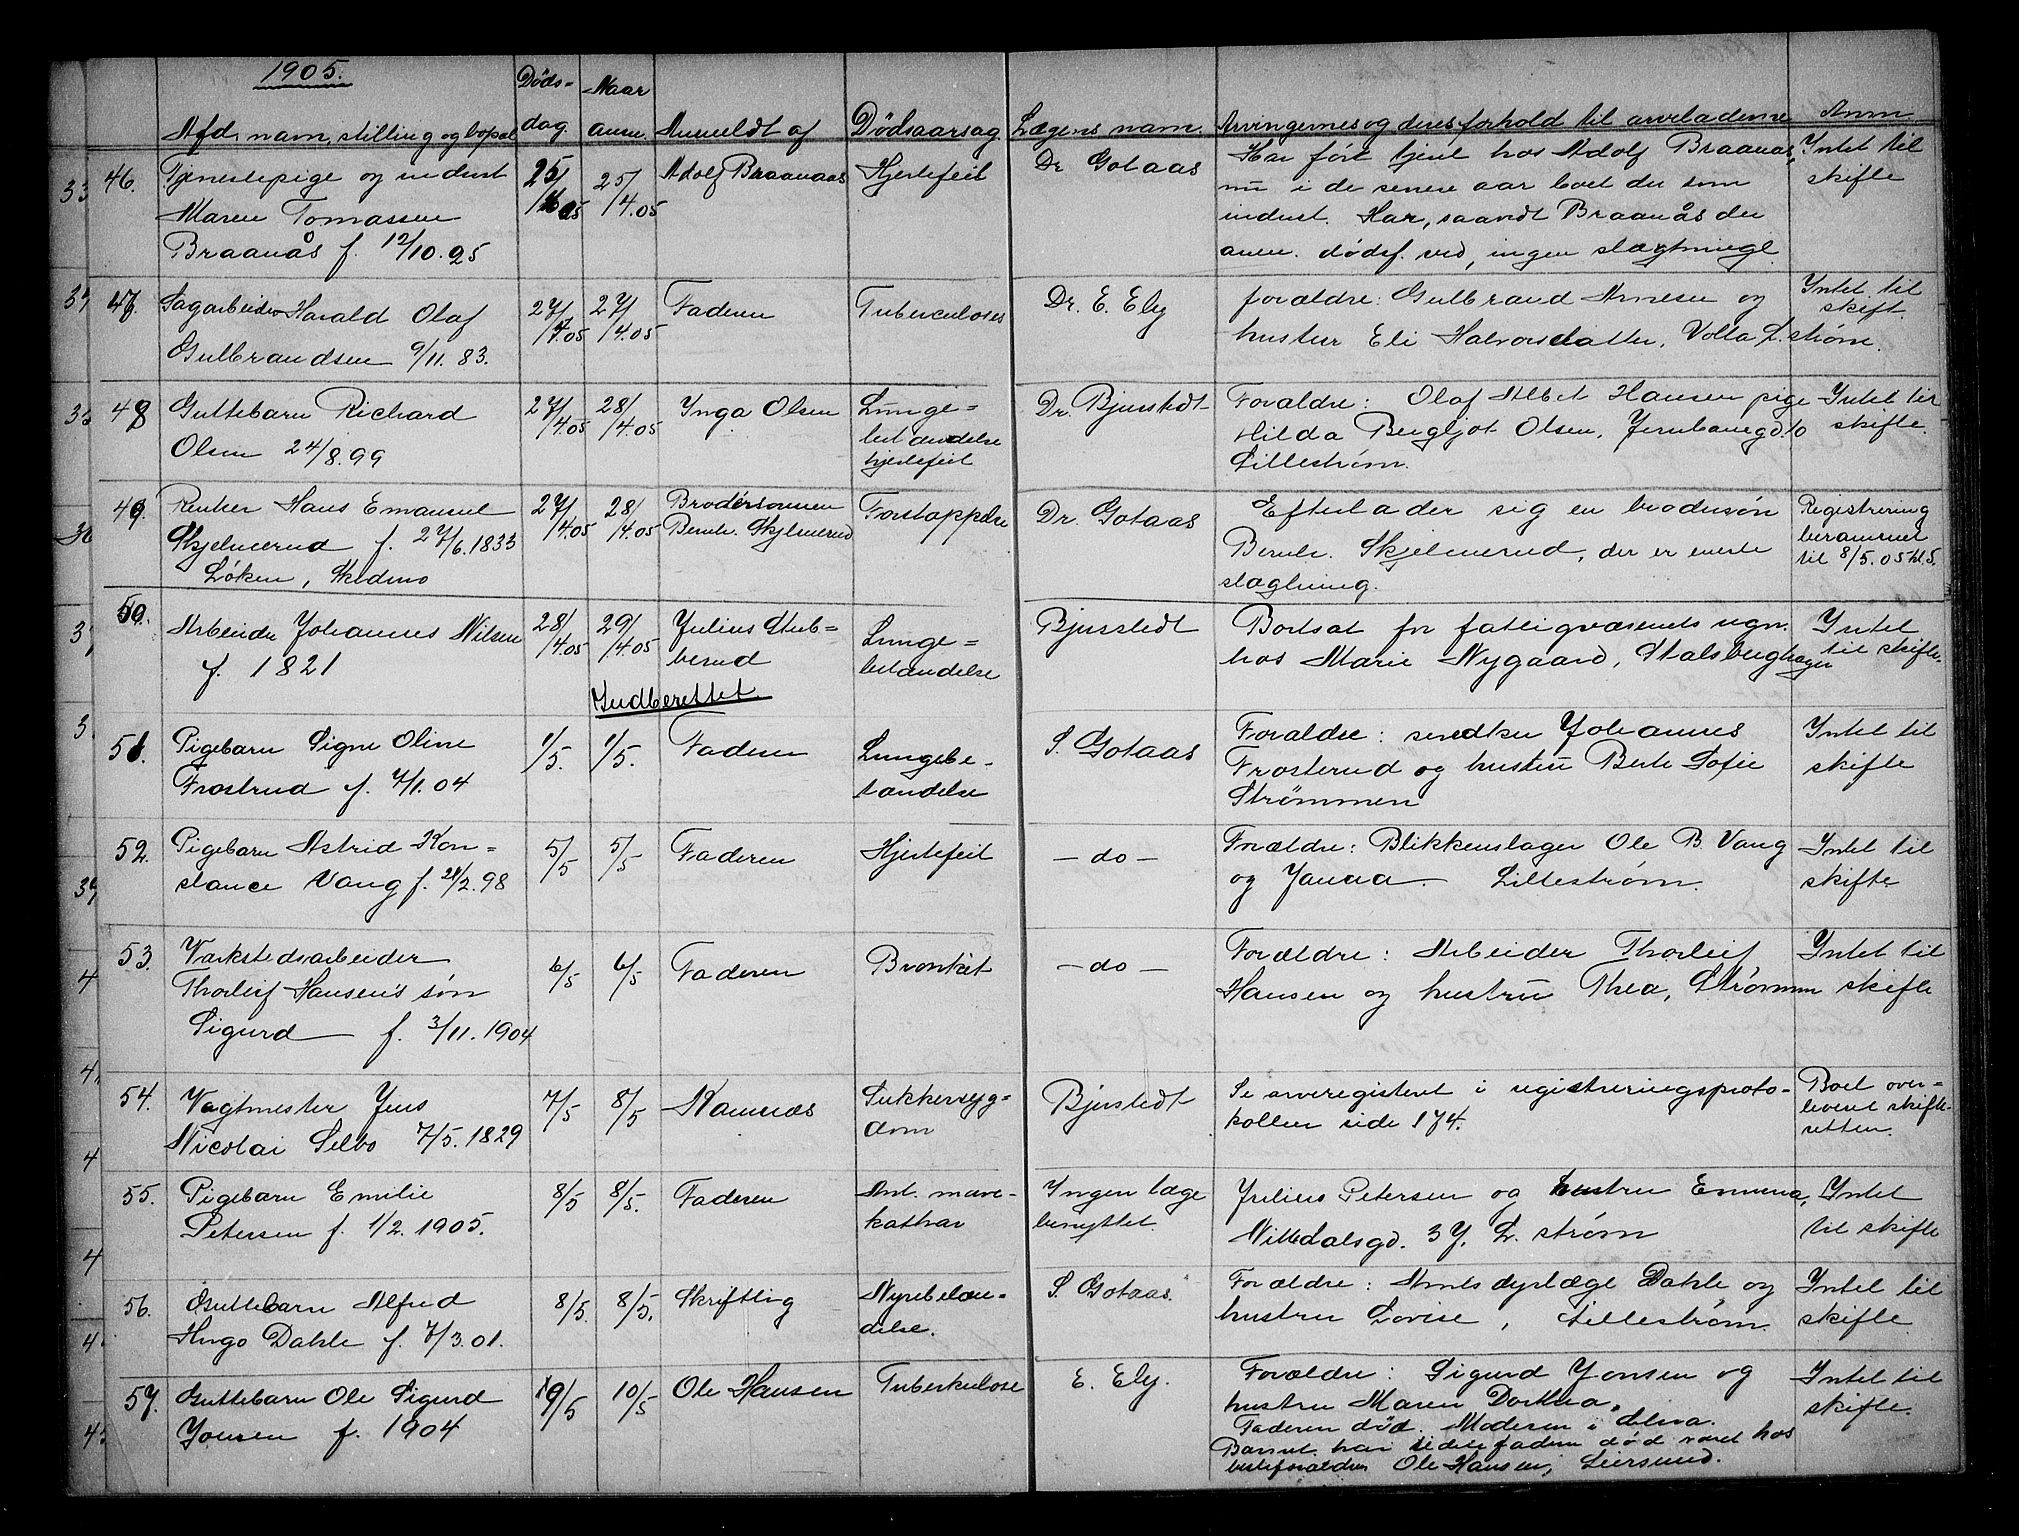 1905.
Afd. nam, stilling og bopæl
Døds-
dag
Naar
anm.
Anmeldt af
Dødsaarsag
Lægens nam
Arvingernes og deres forhold til arveladerne
Anm
46. Tjenestepige og inderst
Maren Tomassen
Braanås f. 12/10.25
25/
4.05
25/
4.05
Adolf Braanaas
Hjertefeil
Dr Gotaas
Har før tjent hos Adolf Braanaas,
nu i de senere aar boet der som
inderst. Har, saavidt Braanås der
anm. dødsf. ved, ingen slægtninge.
Intet til
skifte
47. Sagarbeider Harald Olaf
Gulbrandsen 9/11.83.
27/
4.05
27/
4.05
Faderen
Tuberculoses
Dr. E. Ely
forældre: Gulbrand Arnesen og
hustru Eli Halvorsdatter, Volla L.strøm.
Intet til
skift.
48 Guttebarn Richard
Olsen 24/8.99
27/
4.05
28/
4.05
Inga Olsen
Lunge=
betændelse
hjertefeil
Dr. Bjerstedt
Forældre: Olaf Albet Hansen pige
Hilda Bergljot Olsen, Jernbanegd. 10
Lillestrøm.
Intet til
skifte.
49. Rentier Hans Emanuel
Skjelmerud f. 27/6.1833
Løken, Skedsmo
27/
4.05
28/
4.05
Brodersønnen
Bernh. Skjelmerud
Forstoppelse
Dr. Gotaas
Efterlader sig en brodersøn
Bernh. Skjelmerud, der er eneste
slægtning.
Registrering
berammet
til 8/5.05 kl. 5.
50. Arbeider Johannes Nilsen
f. 1821
28/
4.05
29/
4.05
Julius Stub=
berud
Lunge=
betændelse
Bjerstedt
Bortsat for fattigvæsenets regn.
hos Marie Nygaard, Stalsberghagen
Intet
til skifte.
Indberettet.
51. Pigebarn Signe Oline
Frostrud f. 7/1.04
1/5.
1/5.
Faderen
Lungebe-
tændelse
S. Gotaas
Forældre: snedker Johannes
Frosterud og hustru Berte Sofie
Strømmen
Intet til
skifte
52. Pigebarn Astrid Kon=
stance Vang f. 28/2.98
5/5
5/5
Faderen
Hjertefeil
- do -
Forældre: Blikkenslager Ole B Vang
og Janna. Lillestrøm.
Intet til
skifte
53. Værkstedsarbeider
Thorleif Hansen's søn
Sigurd f. 3/11.1904
6/5
6/5
Faderen
Bronkit
- do -
Forældre: Arbeider Thorleif
Hansen og hustru Thea, Strømmen
Intet til
skifte
54. Vagtmester Jens
Nicolai Selbo 7/5.1829
7/5
8/5
Sukkersyg=
dom
Bjerstedt
Se arveregisteret i registreringsproto-
kollen side 174.
Boet over=
leveret skifte-
retten.
55. Pigebarn Emilie
Petersen f. 1/2.1905.
8/5
8/5.
Faderen
Ant. mave-
kathar
Ingen læge
benyttet.
Julius Petersen og hustru Emma,
Nittedalsgd. 3 L.strøm
Intet
til skifte
56. Guttebarn Alfred
Hugo Dahle f. 7/3.01.
8/5.
8/5.
Skriftlig
Nyrebetæn-
delse.
S. Gotaas.
Forældre: Amtsdyrlæge Dahle og
hustru Lovise, Lillestrøm
Intet til
skifte.
57. Guttebarn Ole Sigurd
Jonsen f. 1904
10/5
10/5
Ole Hansen
Tuberkulose
E. Ely.
Forældre: Sigurd Jonsen og
hustru Maren Dorthea.
Faderen død. Moderen i
Barnet har siden faderen død været hos
besteforældre Ole Hansen, Leirsund.
Intet til
skifte.